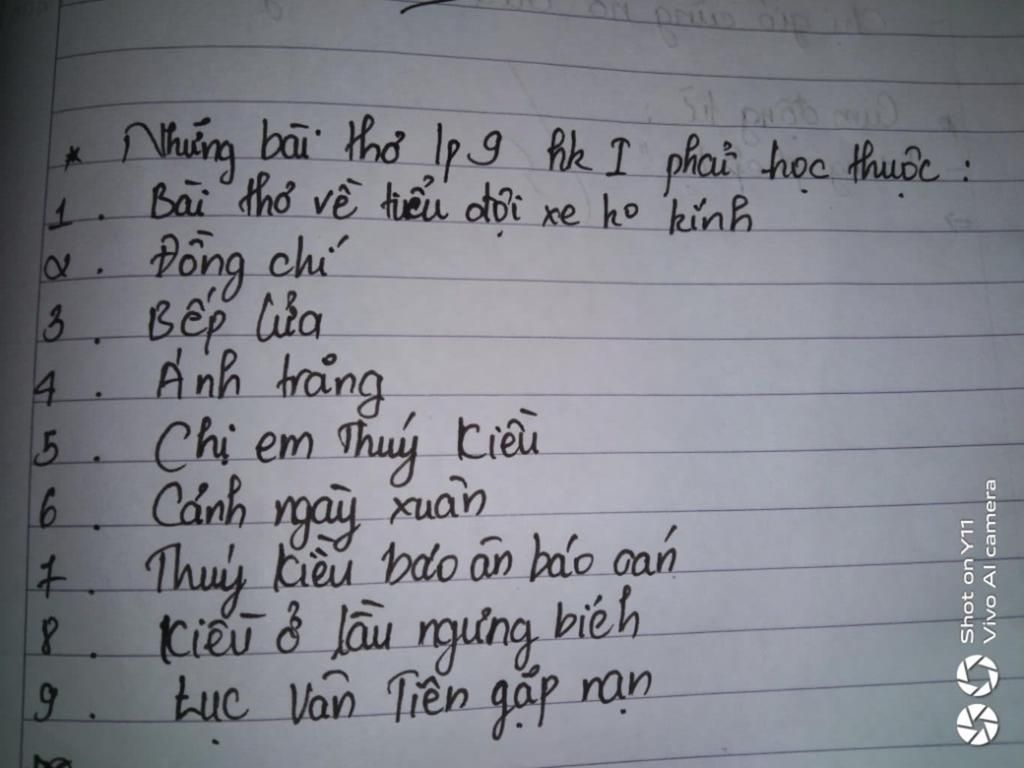 * Những bài thơ lp 9 hk I phải học thuộc :
1. Bài thơ về tiểu đội xe ko kính
2. Đồng chí
3. Bếp lửa
4. Ánh trăng
5. Chị em Thuý Kiều
6. Cảnh ngày xuân
7. Thuý Kiều báo ân báo oán
8. Kiều ở lầu ngưng bích
9. Lục Vân Tiên gặp nạn
Shot on Y11
Vivo AI camera